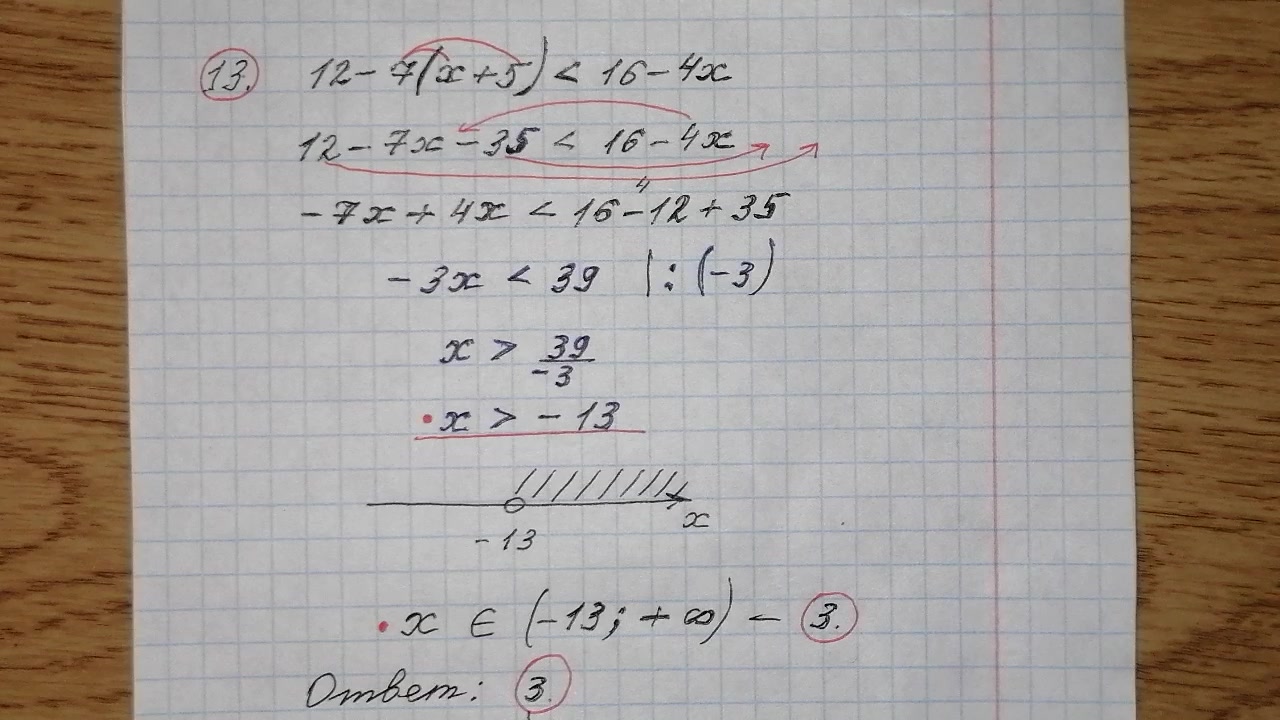 13. 12 - 7(x + 5) < 16 - 4x
12 - 7x - 35 < 16 - 4x
4
-7x + 4x < 16 - 12 + 35
-3x < 39 | : (-3)
x > 39/-3
x > -13
x
-13
x ∈ (-13; +∞) - 3.
Ответ: 3.